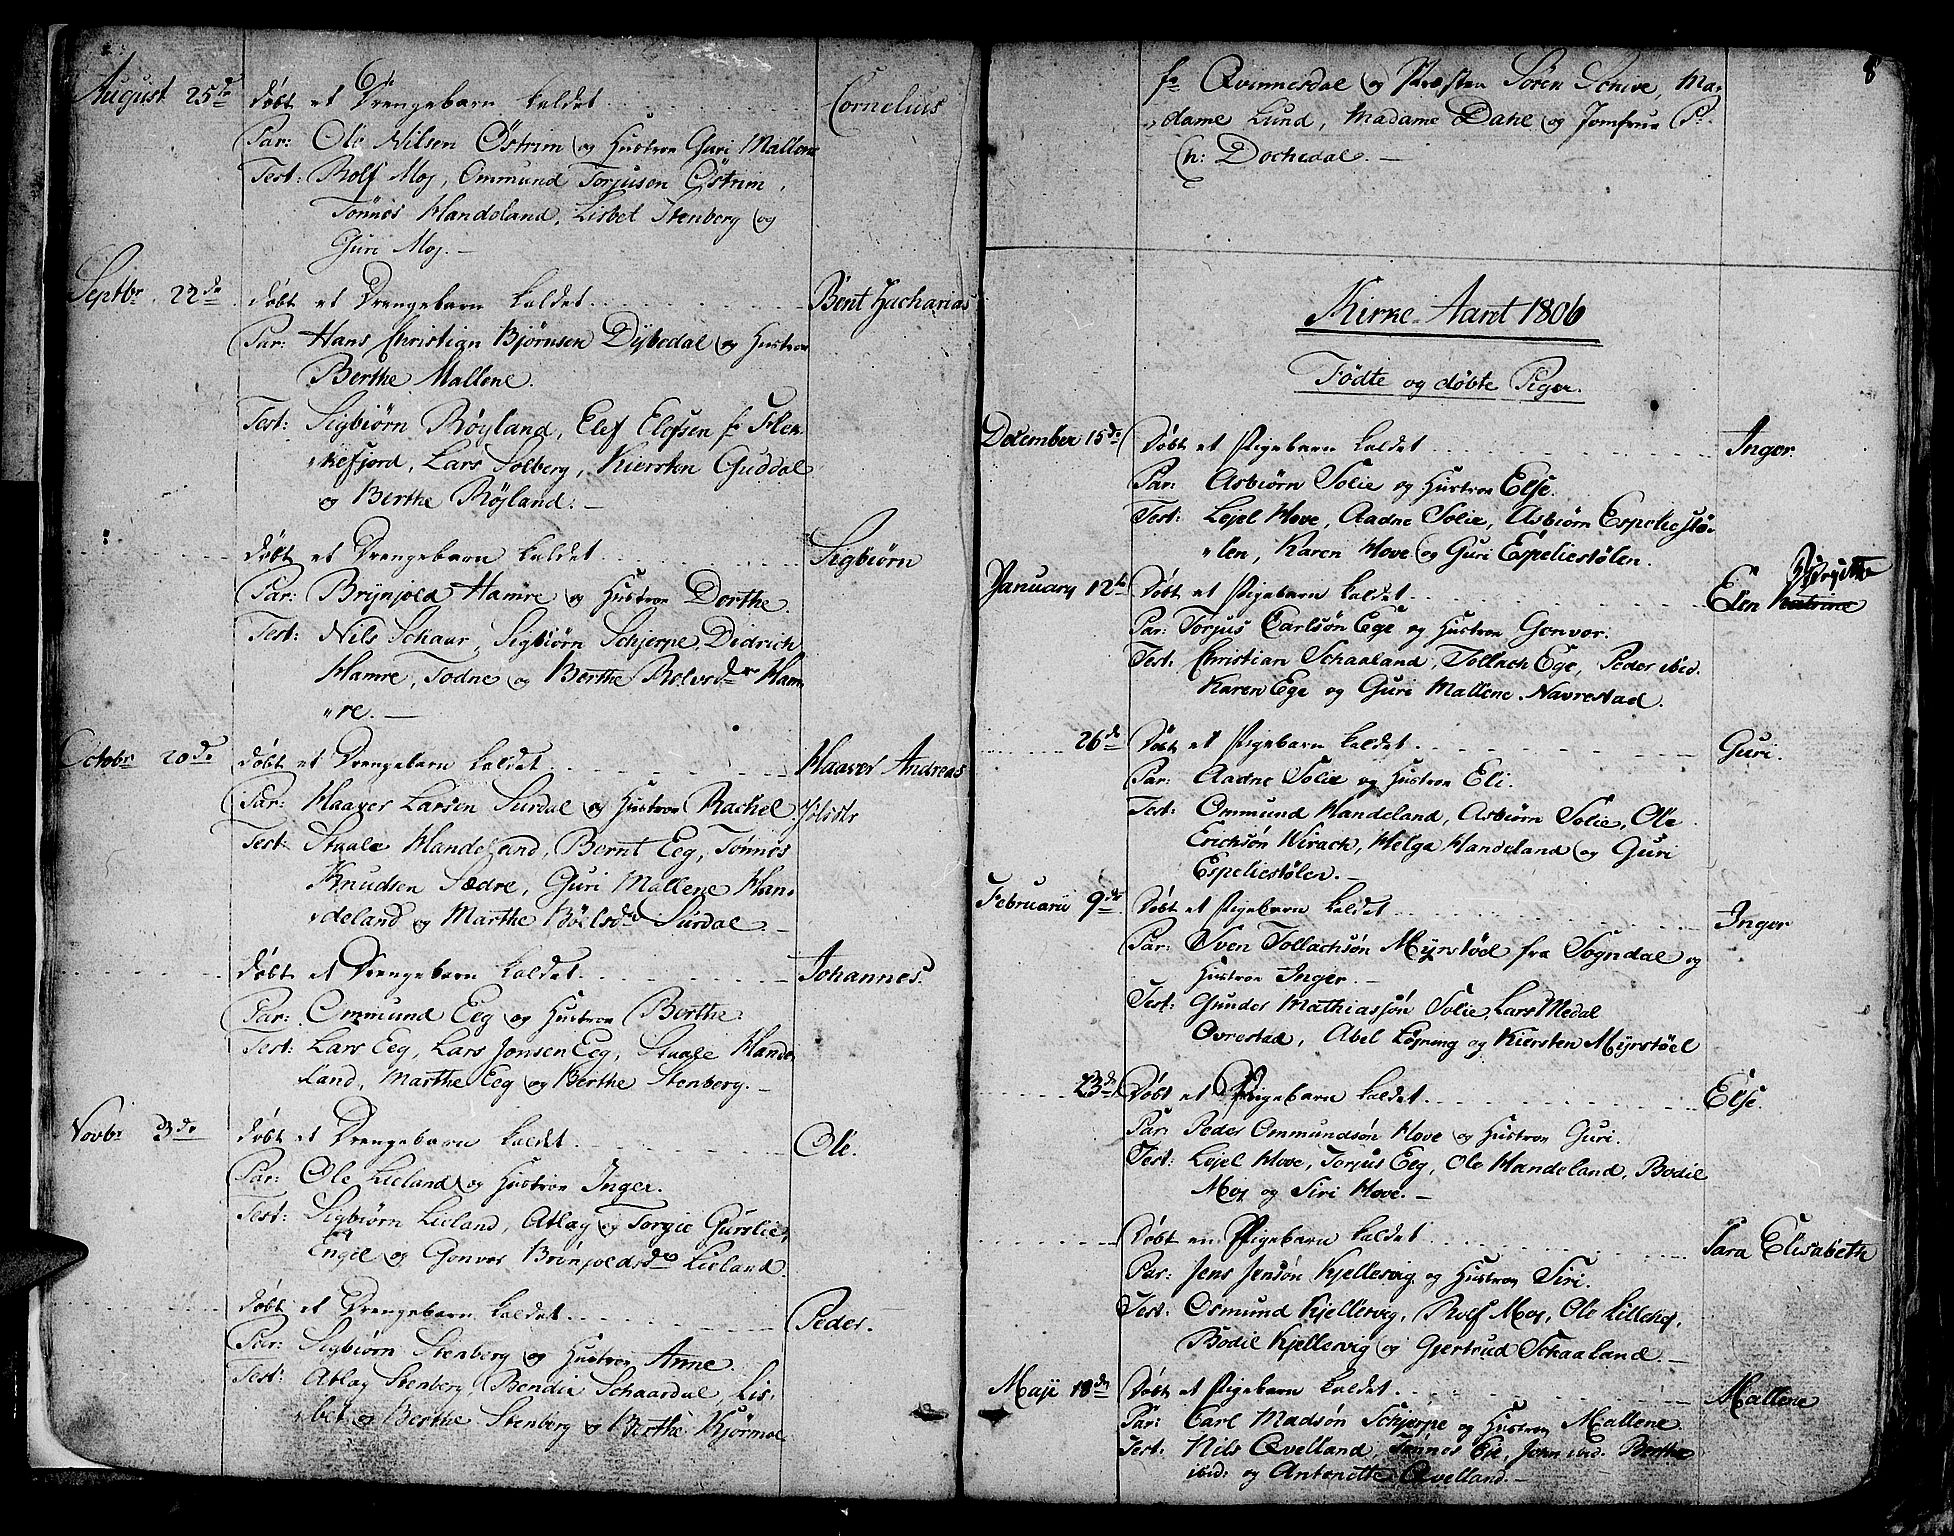 August 25de døbt et Drengebarn kaldet Cornelius
Par: Ole Nilsen Östrim og Hustroe Guri Mallene
Test: Rolf Moj, Ommund Torjusen Östrim,
Tönnes Handeland, Lisbet Stenberg og
Guri Moj.
Septbr 22de døbt et Drengebarn kaldet Bent Zacharias
Par: Hans Christian Bjørnsen Dybedal og Hustroe
Berthe Mallene.
Test: Sigbiørn Røyland, Elef Elefsen fr Flek-
kefjord, Lars Solberg, Kiersten Guddal
og Berthe Røjland.
døbt et Drengebarn kaldet Sigbiørn
Par: Brynjold Hamre og Hustroe Dorthe.
Test: Nils Schaar, Sigbiørn Schjerpe, Didrich
Hamre, Todne og Berthe Rolvsdr Ham-
re.
Octobr 20de døbt et Drengebarn kaldet Haaver Andreas
Par: Haaver Larsen Surdal og Hustroe Rachel
Test: Staale Handeland, Bernt Eeg, Tönnes
Knudsen Sædre, Guri Mallene Han-
deland og Marthe Bóelsdr Surdal.
døbt et Drengebarn kaldet Johannes.
Par: Ommund Eeg og Hustroe Berthe
Test: Lars Eeg, Lars Jonsen Eeg, Staale Hande-
land, Marthe Eeg og Berthe Stenberg.
Novbr 3de døbt et Drengebarn kaldet Ole.
Par: Ole Lieland og Hustroe Inger.
Test: Sigbiørn Lieland, Atlag og Torgie Gurslie,
Engel og Gonvor Brönjoldsdr Lieland.
døbt et Drengebarn kaldet Peder.
Par: Sigbiørn Stenberg og Hustroe Anne
Test: Atlag Stenberg, Bendix Schaardal, Lis-
bet og Berthe Stenberg og Berthe Kjörmoe
8
fr Qvinnesdal og Præsten Sören Schive, Ma-
dame Lund, Madame Dahl og Jomfrue
Dochedal.
Kirke-Aaret 1806
Födte og døbte Piger.
December 15de Døbt et Pigebarn kaldet Inger.
Par: Asbiørn Solie og Hustroe Else.
Test: Lejel Hove, Aadne Solie, Asbiørn Espeliestö-
len, Karen Hove og Guri Espeliestølen.
January 12te Døbt et Pigebarn kaldet Elen Katrine Birgitte
Par: Torjus Carlsön Ege og Hustroe Gonvor.
Test: Christian Schaaland, Tollach Ege, Peder ibid.
Karen Ege og Guri Mallene Navrestad.
26de Døbt et Pigebarn kaldet Guri.
Par: Aadne Solie og Hustroe Eli.
Test: Ommund Handeland, Asbiørn Solie, Ole
Erichsön Wirach, Helga Handeland og Guri
Espeliestölen.
Februarii 9de Døbt et Pigebarn kaldet Inger
Par: Sven Tollachsön Myrstöel fra Sogndal og
Hustroe Inger.
Test: Gunder Mathiassøn Solie, Lars Medal
Ovrestad, Abel Löjning og Kiersten Myrstöel
23de Døbt et Pigebarn kaldet Else.
Par: Peder Ommundsön Hove og Hustroe Guri.
Test: Lejel Hove, Torjus Eeg, Ole Handeland, Bodil
Moj og Siri Hove.
Døbt en Pigebarn kaldet Sara Elisabeth
Par: Jens Jensön Kjellervig og Hustroe Siri.
Test: Osmund Kjellervig, Rolf Moj, Ole Lillehof,
Bodil Kjellervig og Gjertrud Schaaland.
Maji 18de Døbt et Pigebarn kaldet Mallene
Par: Carl Madsön Schjerpe og Hustroe Mallene
Test: Nils Qvelland, Tönnes Ee, John ibid. Berthe
ibid: og Antonette Qvelland.